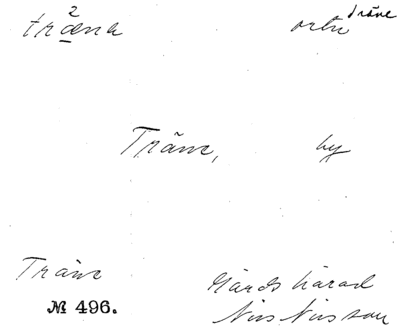 träna ortn Träne
Träne, by
Träne Gärds härad
№ 496. Nils Nilsson